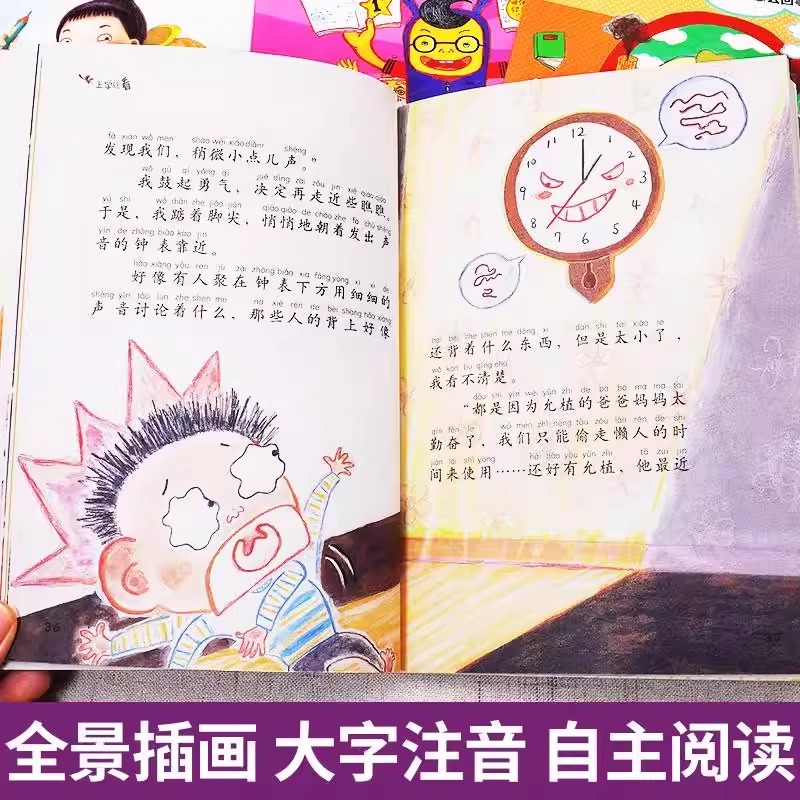 上学就看
fā xiàn wǒ men shāo wēi xiǎo diǎnr shēng
发现我们，稍微小点儿声。”
wǒ gǔ qǐ yǒng qì jué dìng zài zǒu jìn xiē qiáo qiáo
我鼓起勇气，决定再走近些瞧瞧。
yú shì wǒ diǎn zhe jiǎo jiān qiāo qiāo de cháo zhe fā chū shēng
于是，我踮着脚尖，悄悄地朝着发出声
yīn de zhōng biǎo kào jìn
音的钟表靠近。
hǎo xiàng yǒu rén jù zài zhōng biǎo xià fāng yòng xì xì de
好像有人聚在钟表下方用细细的
shēng yīn tǎo lùn zhe shén me nà xiē rén de bèi shang hǎo xiàng
声音讨论着什么，那些人的背上好像
36
12
1
2
3
4
5
6
7
8
9
10
11
hái bēi zhe shén me dōng xi dàn shì tài xiǎo le
还背着什么东西，但是太小了，
wǒ kàn bu qīng chu
我看不清楚。
dōu shì yīn wèi yǔn zhí de bà ba mā ma tài
“都是因为允植的爸爸妈妈太
qín fèn le wǒ men zhǐ néng tōu zǒu lǎn rén de shí
勤奋了，我们只能偷走懒人的时
jiān lái shǐ yòng hái hǎo yǒu yǔn zhí tā zuì jìn
间来使用……还好有允植，他最近
37
全景插画 大字注音 自主阅读